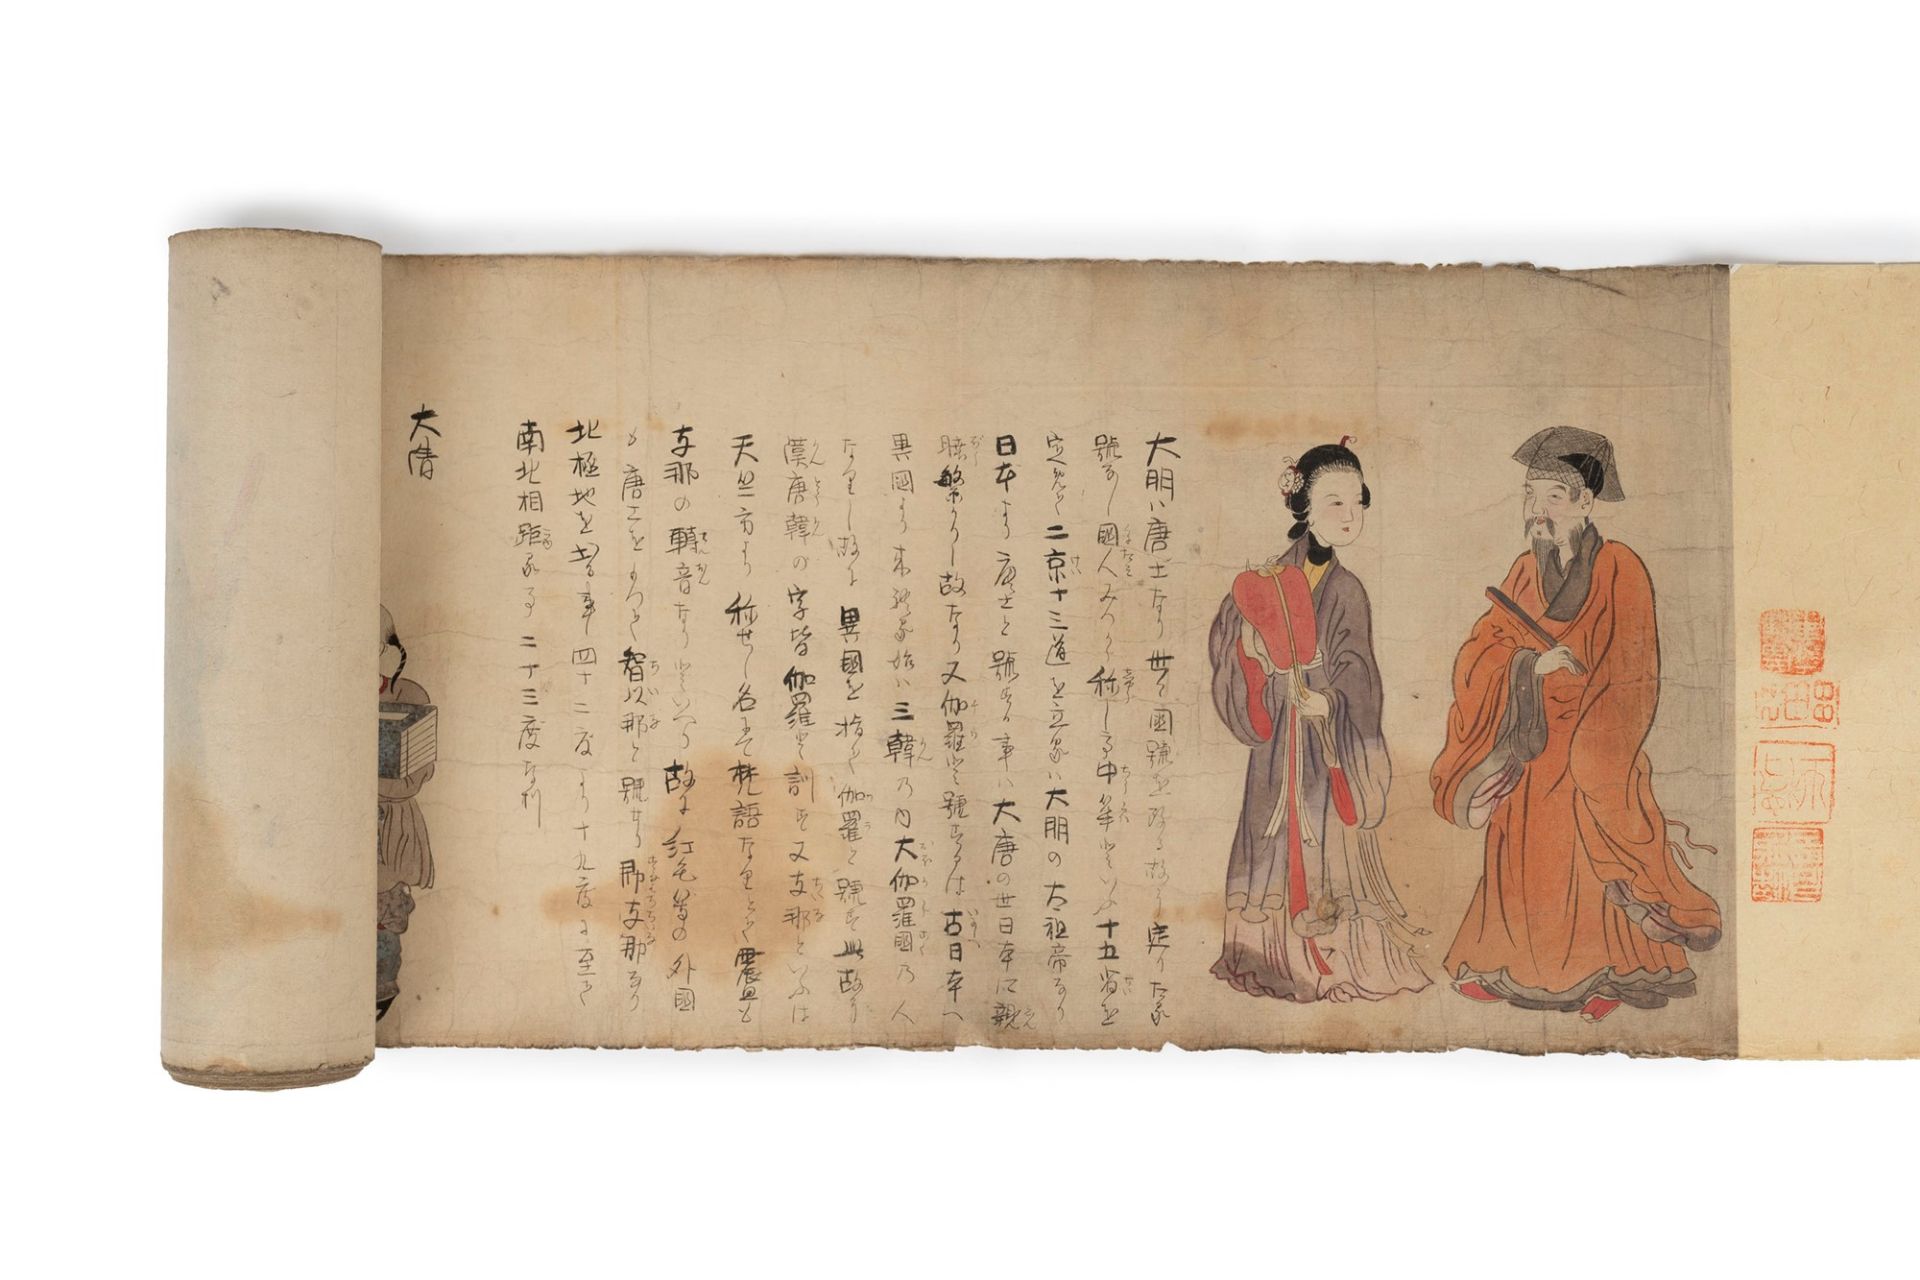 大明ハ唐土なり世々國號を改る故に定りたる
號なし國人みつから称し而中華といふ十五省を
定め而二京十三道を立るハ大明の太祖帝なり
日本より唐土と號する事ハ大唐の世日本に親
睦繁かりし故なり又伽羅と號するは古日本へ
異國より来the始ハ三韓乃内大伽羅國乃人
なりし故に異國を指て伽羅と號す此故に
漢唐韓の字皆伽羅と訓す又支那といふは
天竺方より称せし名にて梵語なりとそ震旦も
支那の轉音なりといへり故に紅毛等の外國
も唐土をもつて智以那と號せり即支那なり
北極地を出る事四十二度より十九度に至て
南北相距る事二十三度なり
大清